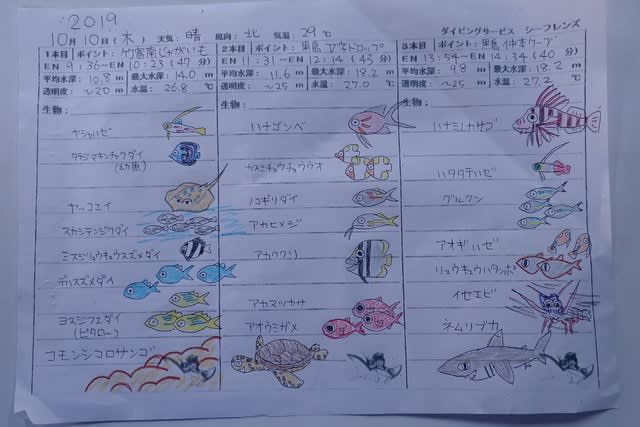 2019
10月10日(木) 天気: 晴 風向: 北 気温: 29℃ ダイビングサービス シーフレンズ
1本目 ポイント: 竹富南じゃがいも
EN 9:36~EN 10:23 (47分)
平均水深: 10.8 m 最大水深: 14.0 m
透明度: ~20 m 水温: 26.8 ℃
生物:
ヤシャハゼ
タテジマキンチャクダイ
(幼魚)
ヤッコエイ
スカシテンジクダイ
ミスジリュウキュウスズメダイ
デバスズメダイ
ヨスジフエダイ
(ビタロー)
コモンシコロサンゴ
2本目 ポイント: 黒島 V字ドロップ
EN 11:31~EN 12:14 (43分)
平均水深: 11.6 m 最大水深: 18.2 m
透明度: ~25 m 水温: 27.0 ℃
生物:
ハナゴンベ
カスミチョウチョウウオ
ノコギリダイ
アカヒメジ
アカククリ
アカマツカサ
アオウミガメ
3本目 ポイント: 黒島 仲本ケーブ
EN 13:54~EN 14:34 (40分)
平均水深: 9.8 m 最大水深: 18.2 m
透明度: ~25 m 水温: 27.2 ℃
生物:
ハナミノカサゴ
ハタタテハゼ
グルクン
アオギハゼ
リュウキュウハタンポ
イセエビ
ネムリブカ